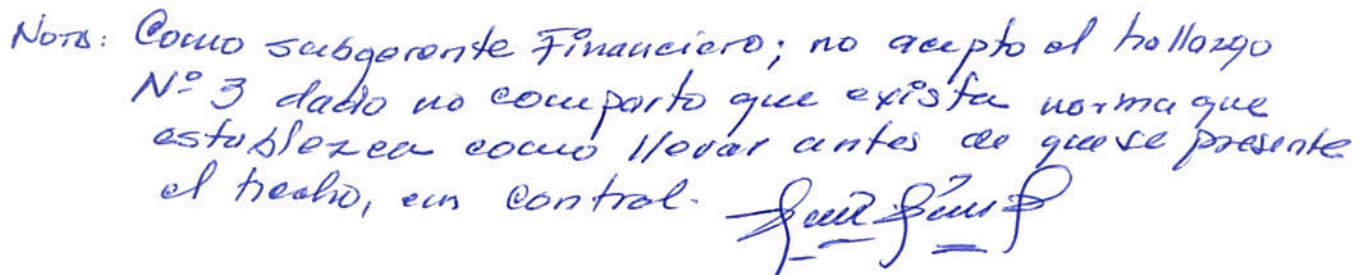 Nota: Como subgerente Financiero; no acepto el hallazgo
Nº 3 dado no comparto que exista norma que
establezca como llevar antes de que se presente
el hecho, un control.